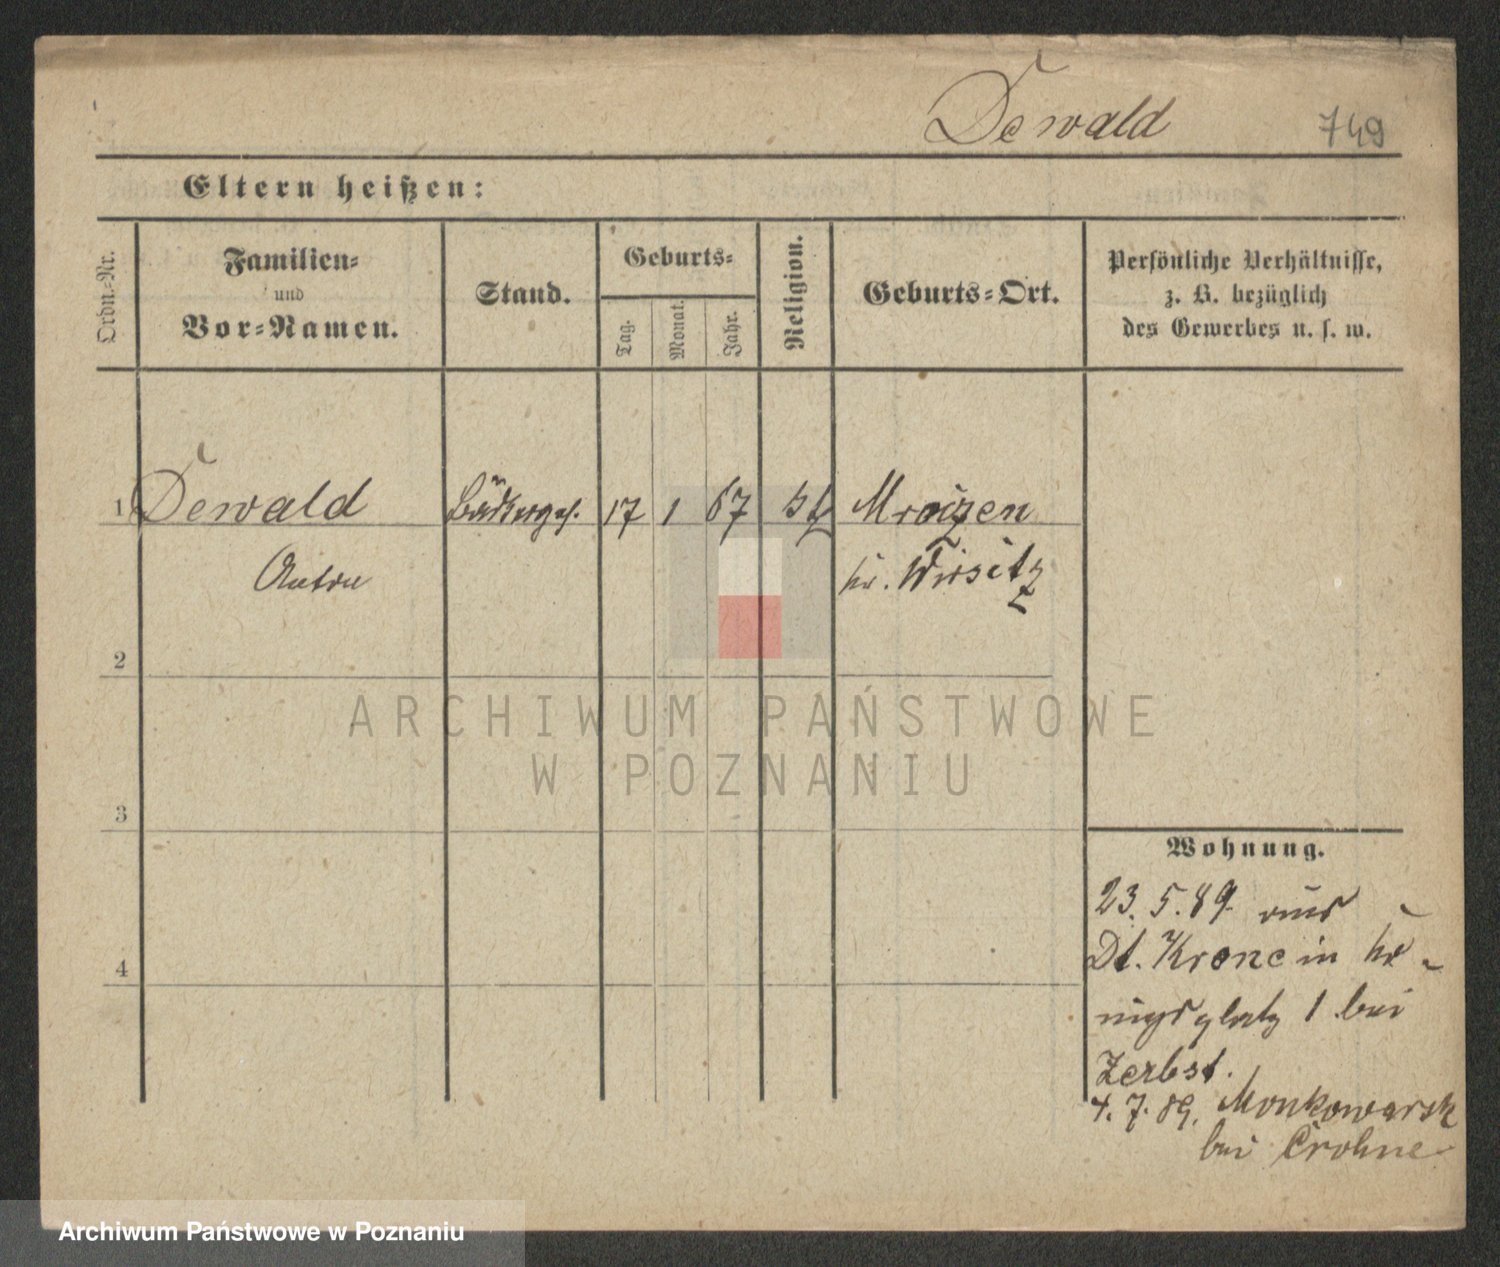 Dewald 749
Eltern heißen:
Ordn.-Nr.
Familien-
und
Vor-Namen.
Stand.
Geburts-
Tag.
Monat.
Jahr.
Religion.
Geburts-Ort.
Persönliche Verhältnisse,
z. B. bezüglich
des Gewerbes u. s. w.
1 Dewald Bäckerges. 17 1 67 kt Mroczen
Anton Kr. Wirsitz
2
3
4
Wohnung.
23. 5. 89. aus
Dt. Krone in Kö-
nigsplatz 1 bei
Zerbst.
4. 7. 89. Monkowarsk
bei Crohne
ARCHIWUM PAŃSTWOWE
W POZNANIU
Archiwum Państwowe w Poznaniu